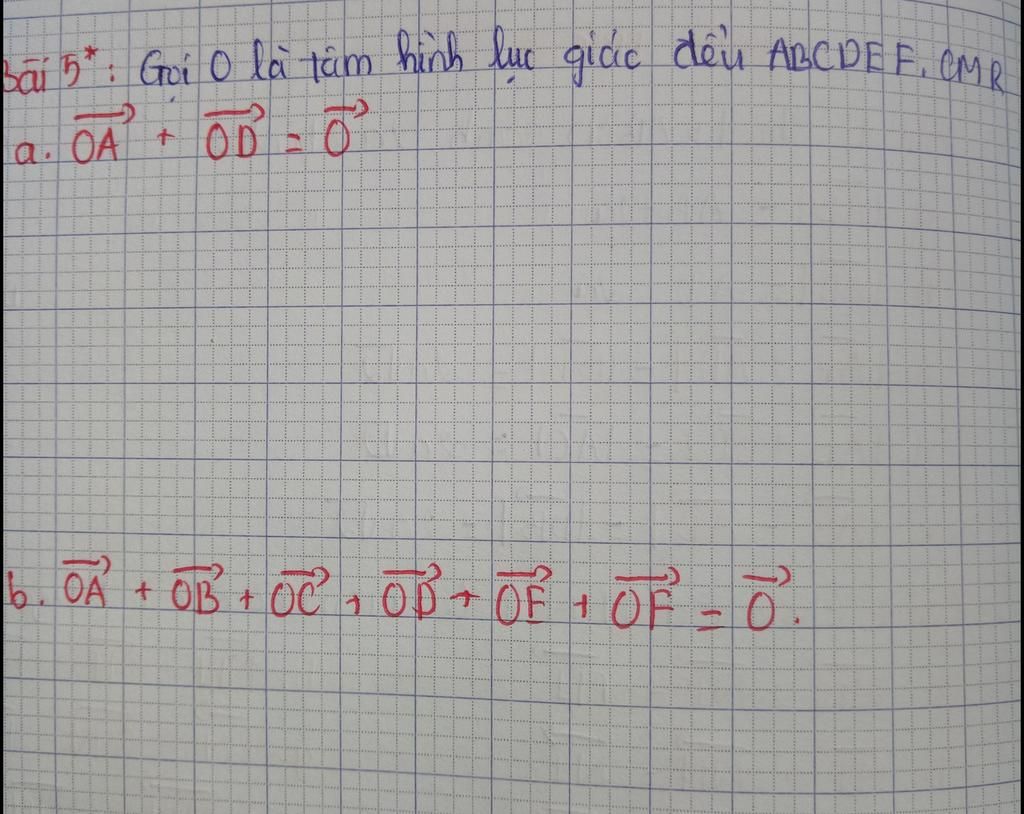 Bài 5*: Gọi O là tâm hình lục giác đều ABCDEF. CMR
a. $\overrightarrow{OA} + \overrightarrow{OD} = \overrightarrow{O}$
b. $\overrightarrow{OA} + \overrightarrow{OB} + \overrightarrow{OC} + \overrightarrow{OD} + \overrightarrow{OE} + \overrightarrow{OF} = \overrightarrow{O}$.